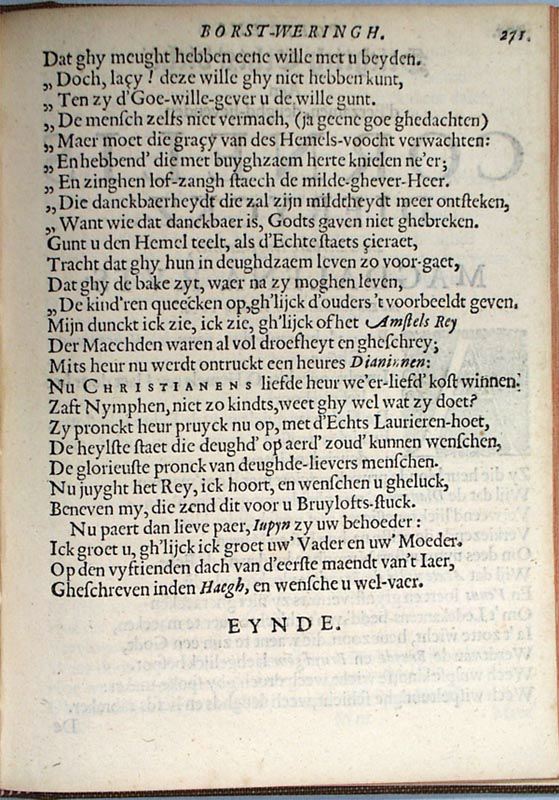 BORST-WERINGH. 271.
Dat ghy meught hebben eene wille met u beyden.
„ Doch, laçy! deze wille ghy niet hebben kunt,
„ Ten zy d'Goe-wille-gever u de wille gunt.
„ De mensch zelfs niet vermach, (ja geene goe ghedachten)
„ Maer moet die graçy van des Hemels-voocht verwachten:
„ En hebbend' die met buyghzaem herte knielen ne'er;
„ En zinghen lof-zangh staech de milde-ghever-Heer.
„ Die danckbaerheydt die zal zijn mildtheydt meer ontsteken,
„ Want wie dat danckbaer is, Godts gaven niet ghebreken.
Gunt u den Hemel teelt, als d'Echte staets çieraet,
Tracht dat ghy hun in deughdzaem leven zo voor-gaet,
Dat ghy de bake zyt, waer na zy moghen leven,
„ De kind'ren queecken op, gh'lijck d'ouders 't voorbeeldt geven.
Mijn dunckt ick zie, ick zie, gh'lijck of het Amstels Rey
Der Maechden waren al vol droefheyt en gheschrey;
Mits heur nu werdt ontruckt een heures Dianinnen:
Nu CHRISTIANENS liefde heur we'er-liefd' kost winnen.
Zaft Nymphen, niet zo kindts, weet ghy wel wat zy doet?
Zy pronckt heur pruyck nu op, met d'Echts Laurieren-hoet,
De heylste staet die deughd' op aerd' zoud' kunnen wenschen,
De glorieuste pronck van deughde-lievers menschen.
Nu juyght het Rey, ick hoort, en wenschen u gheluck,
Beneven my, die zend dit voor u Bruylofts-stuck.
Nu paert dan lieve paer, Iupyn zy uw behoeder:
Ick groet u, gh'lijck ick groet uw' Vader en uw' Moeder.
Op den vyftienden dach van d'eerste maendt van't Iaer,
Gheschreven inden Haegh, en wensche u wel-vaer.
EYNDE.